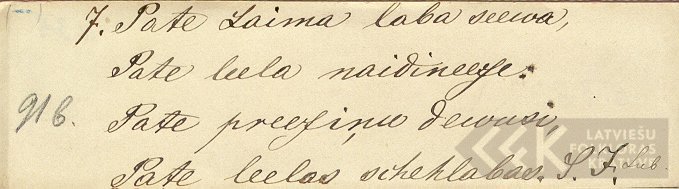 7. Pate Laima laba seewa,
Pate leela naidineeze.
916. Pate preeziņu dewusi,
Pate leelas schehlabas.
LATVIEŠU
FOLKLORAS
KRĀTUVE